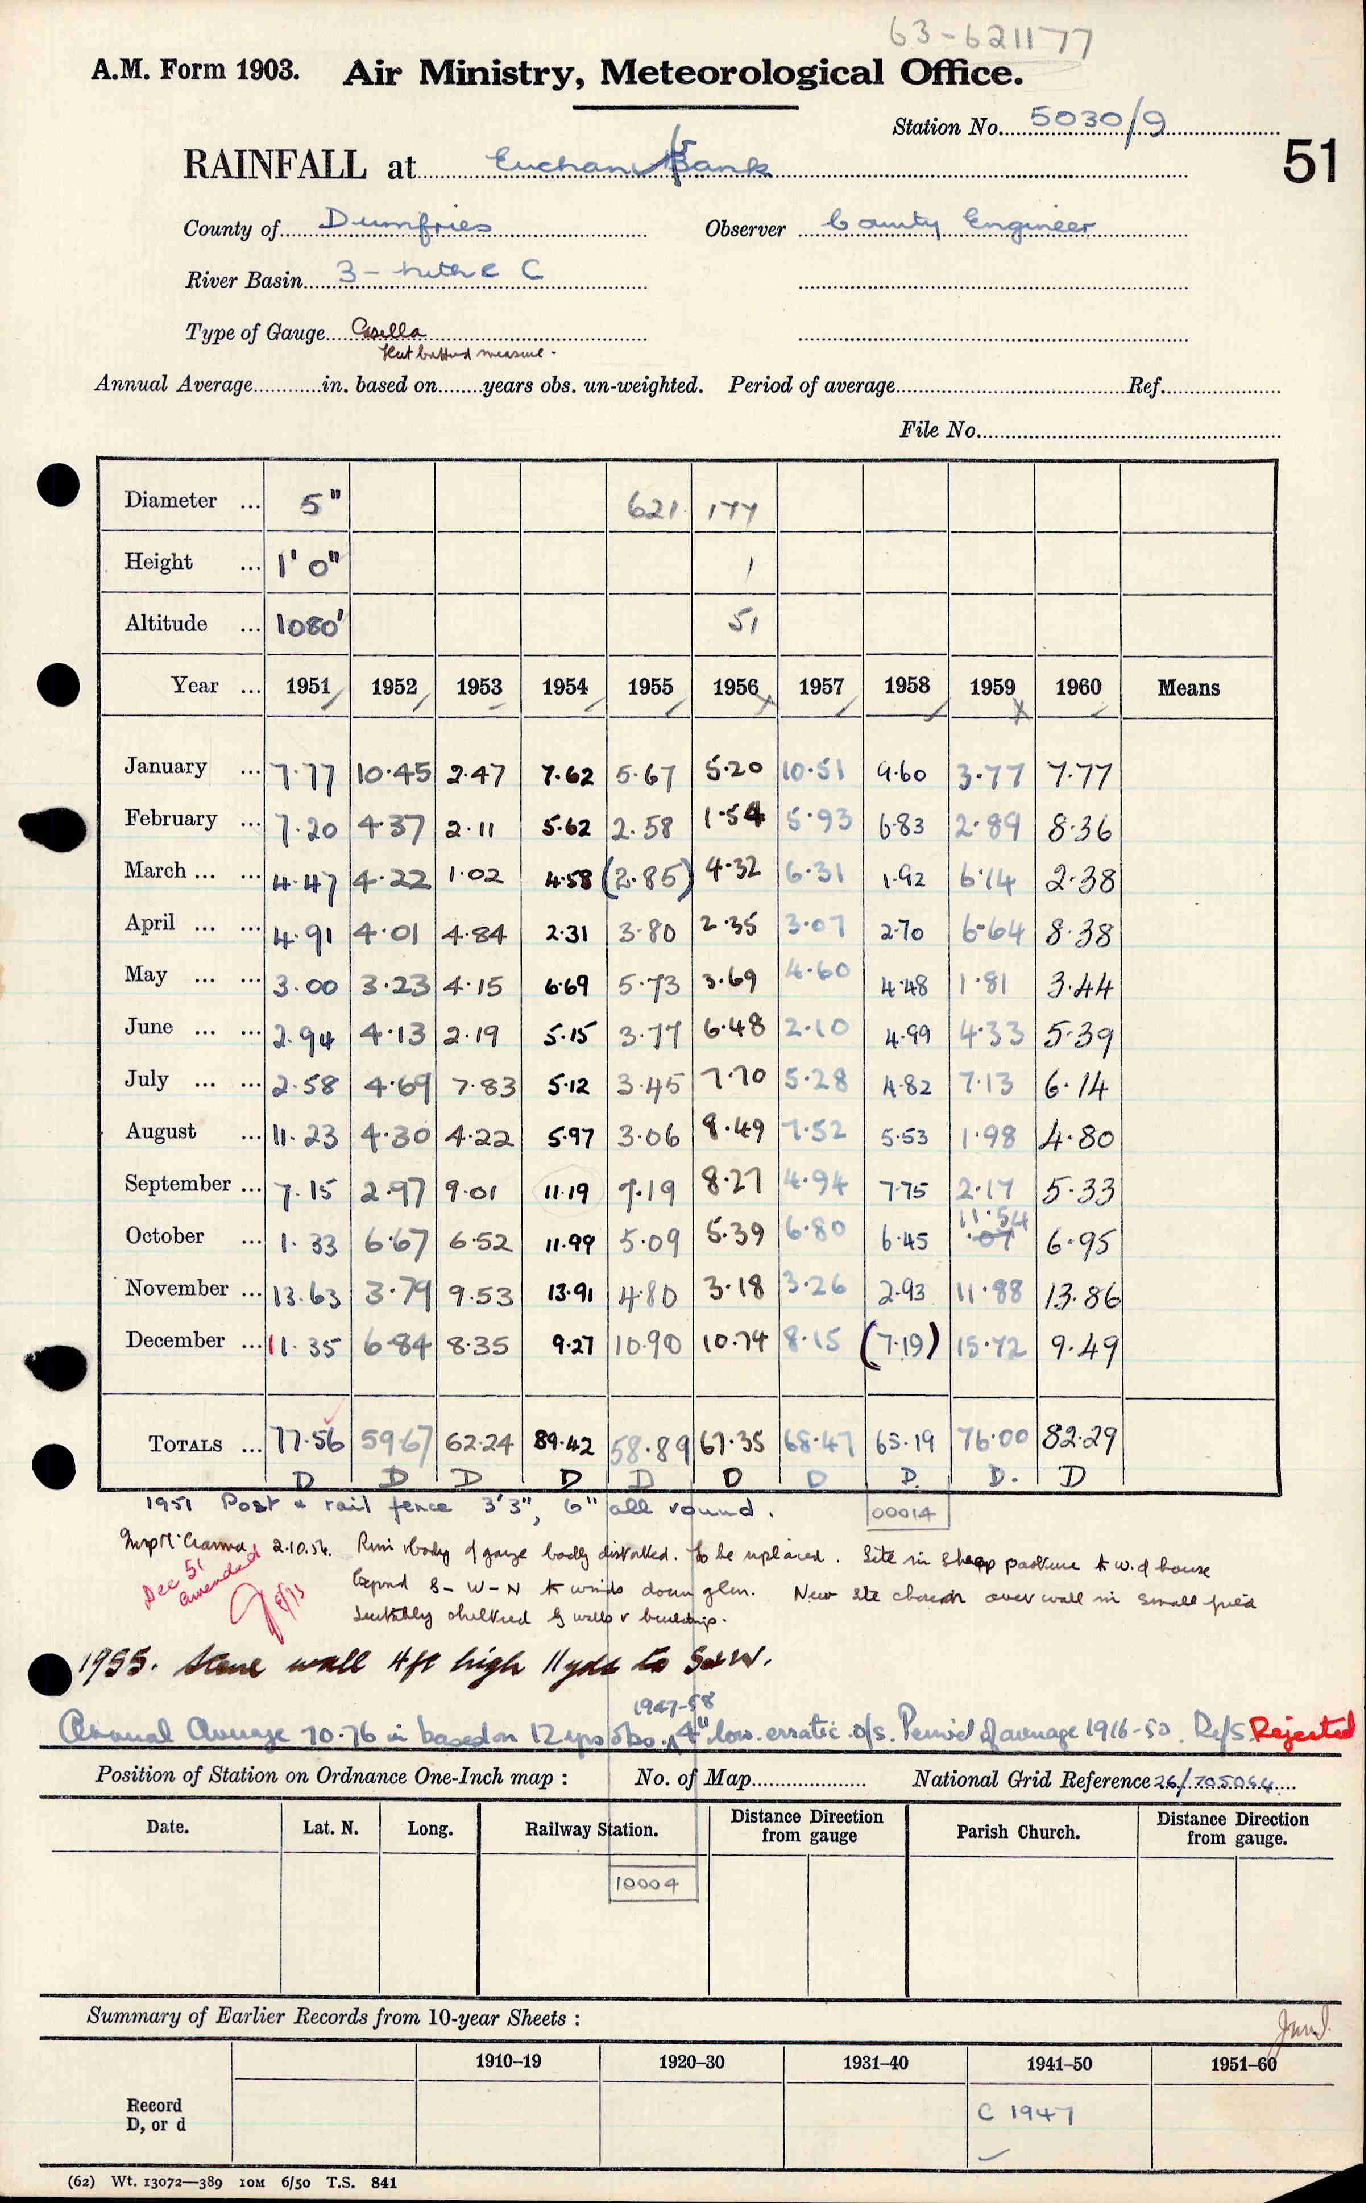 63-621177
A.M. Form 1903. Air Ministry, Meteorological Office.
Station No. 5030/9
51
RAINFALL at Euchan Bank
County of Dumfries Observer County Engineer
River Basin 3 - Nith & C
Type of Gauge Casella
flat bottomed measure.
Annual Average in. based on years obs. un-weighted. Period of average Ref.
File No.
Diameter ... 5" 621 177
Height ... 1' 0" 1
Altitude ... 1080' 51
Year ... 1951 1952 1953 1954 1955 1956 1957 1958 1959 1960 Means
January ... 7.77 10.45 2.47 7.62 5.67 5.20 10.51 9.60 3.77 7.77
February ... 7.20 4.37 2.11 5.62 2.58 1.54 5.93 6.83 2.89 8.36
March ... ... 4.47 4.22 1.02 4.58 (2.85) 4.32 6.31 1.92 6.14 2.38
April ... ... 4.91 4.01 4.84 2.31 3.80 2.35 3.07 2.70 6.64 8.38
May ... ... 3.00 3.23 4.15 6.69 5.73 3.69 4.60 4.48 1.81 3.44
June ... ... 2.94 4.13 2.19 5.15 3.77 6.48 2.10 4.99 4.33 5.39
July ... ... 2.58 4.69 7.83 5.12 3.45 7.70 5.28 4.82 7.13 6.14
August ... 11.23 4.30 4.22 5.97 3.06 8.49 7.52 5.53 1.98 4.80
September ... 7.15 2.97 9.01 11.19 7.19 8.27 4.94 7.75 2.17 5.33
11.54
October ... 1.33 6.67 6.52 11.99 5.09 5.39 6.80 6.45 .07 6.95
November ... 13.63 3.79 9.53 13.91 4.80 3.18 3.26 2.93 11.88 13.86
December ... 11.35 6.84 8.35 9.27 10.90 10.74 8.15 (7.19) 15.72 9.49
TOTALS ... 77.56 59.67 62.24 89.42 58.89 67.35 68.47 65.19 76.00 82.29
D D D D D D D D. D. D
1951 Post & rail fence 3'3", 6" all round.
00014
2.10.54. Rim & body of gauge badly distorted. To be replaced. Site in sheep pasture to W. of house
Dec 51 amended
Exposed S-W-N to winds down glen. New site chosen over wall in small field
suitably sheltered by walls & buildings.
1955. Stone wall 4ft high 11yds to S & W.
1947-58
Annual Average 70.76 in based on 12 yrs obs. 4" low. erratic o/s. Period of average 1916-50. Ref S. Rejected
Position of Station on Ordnance One-Inch map : No. of Map National Grid Reference 26/705064
Date. Lat. N. Long. Railway Station. Distance Direction from gauge Parish Church. Distance Direction from gauge.
10004
Summary of Earlier Records from 10-year Sheets :
1910–19 1920–30 1931–40 1941–50 1951–60
Record
D, or d
C 1947
(62) Wt. 13072—389 10M 6/50 T.S. 841